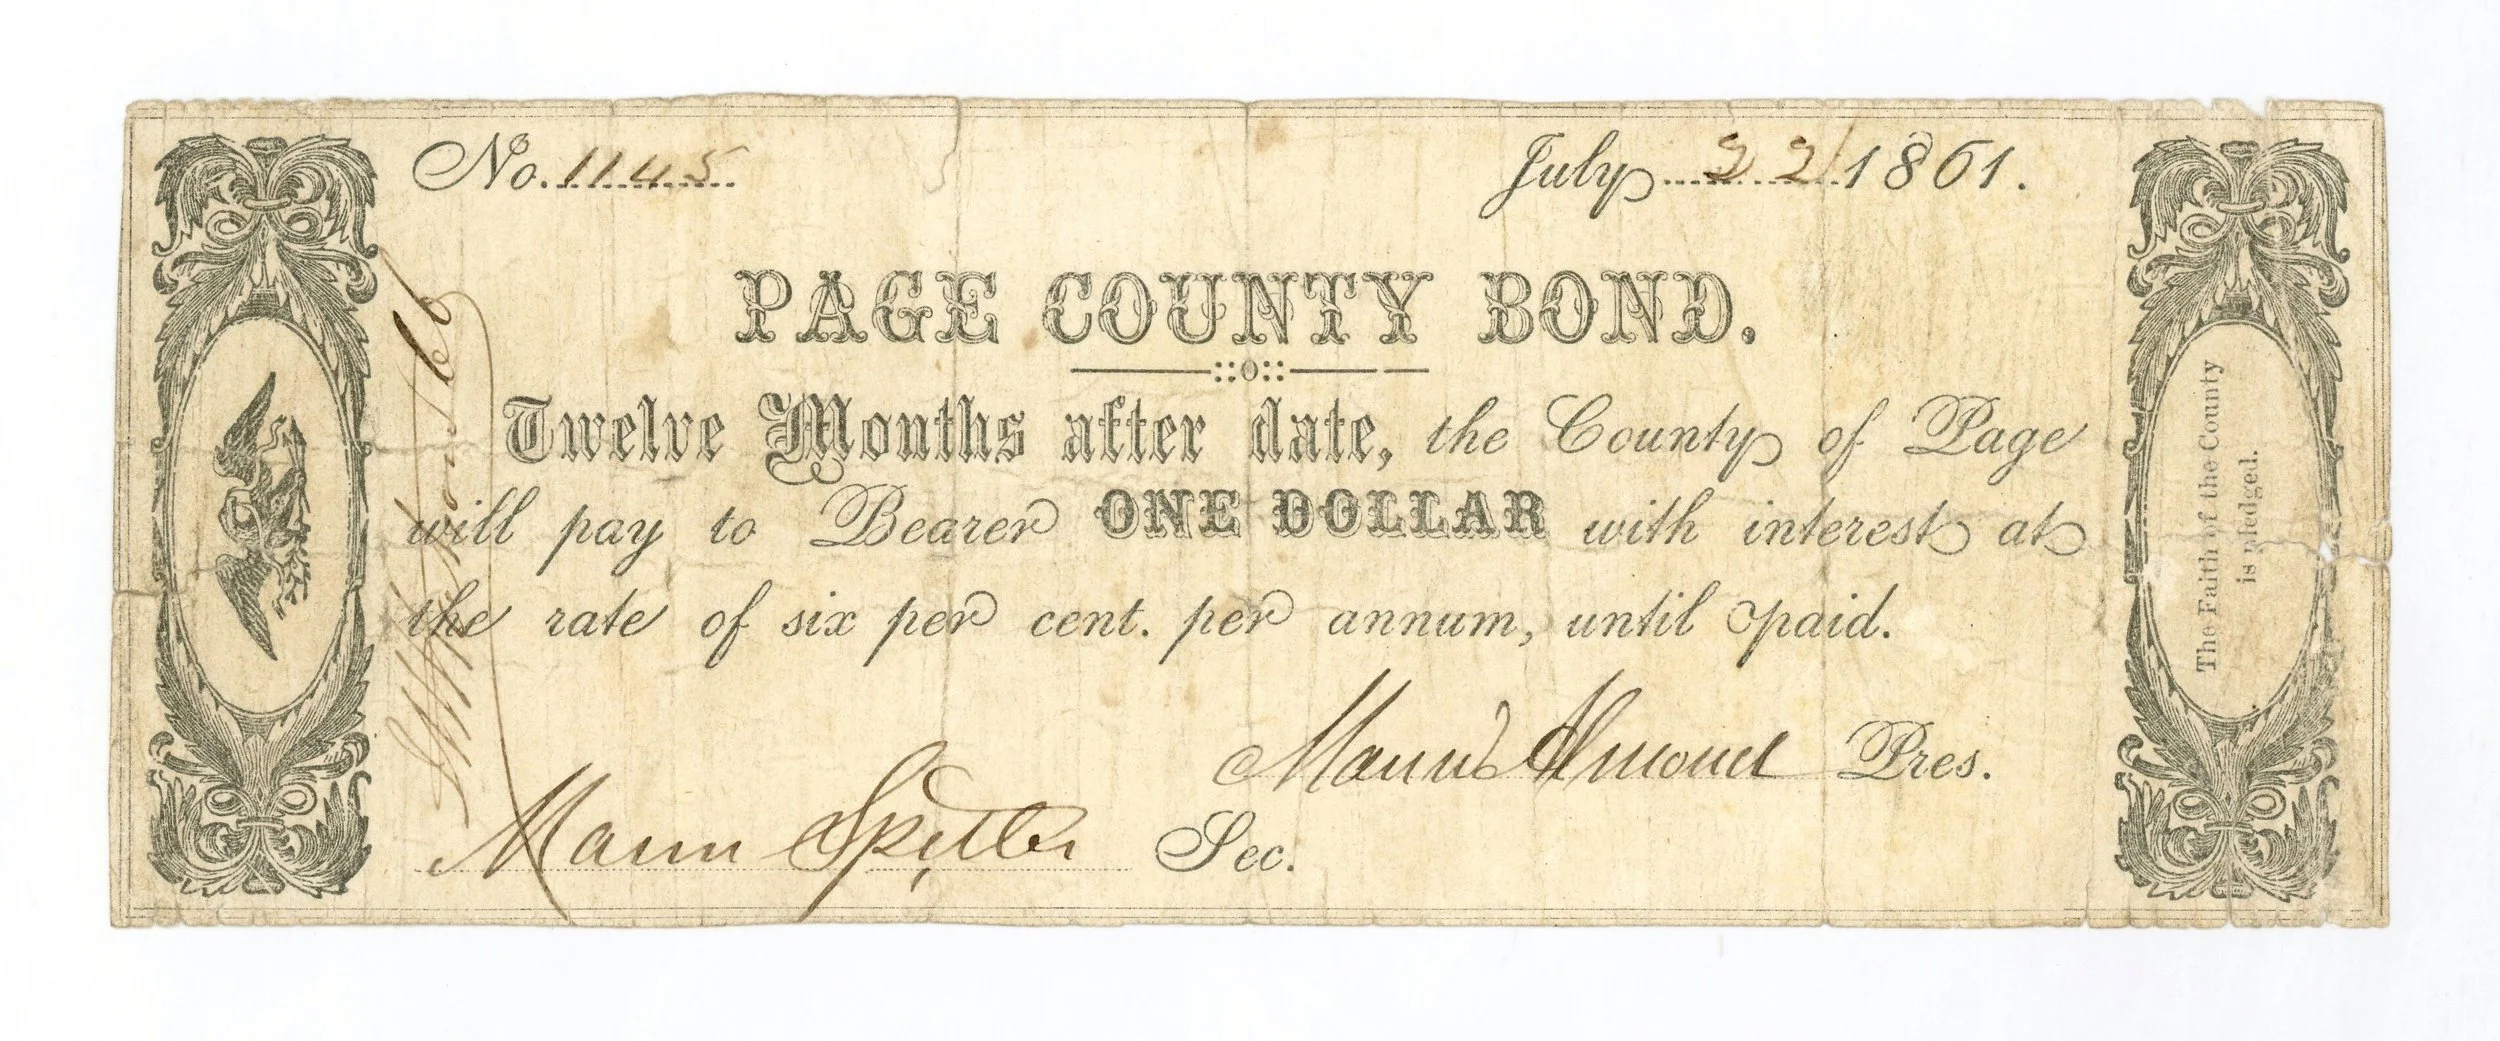 No. 1145
July 22 1861.
PAGE COUNTY BOND.
Twelve Months after date, the County of Page
will pay to Bearer ONE DOLLAR with interest at
the rate of six per cent. per annum, until paid.
Mann Almond Pres.
Mann Spitler Sec.
The Faith of the County
is pledged.